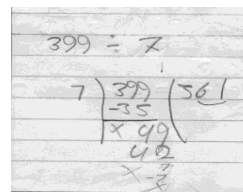 399 ÷ 7
7 ) 399 ( 561
-35
× 49
42
× 7